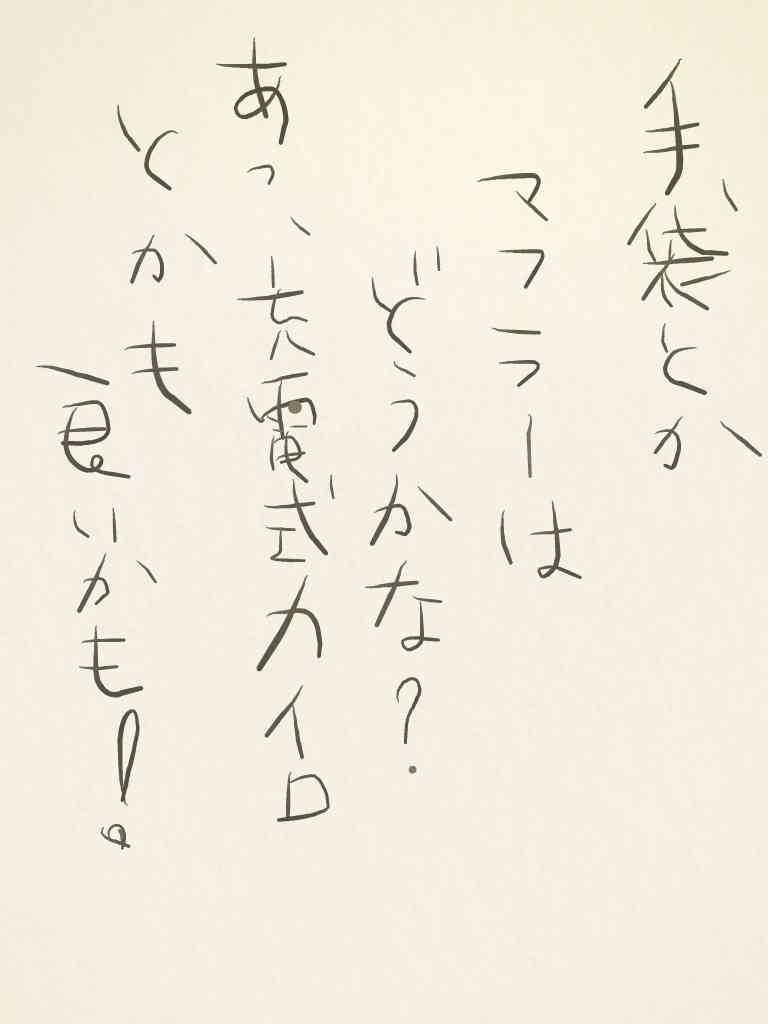 手袋とか
マフラーは
どうかな?
あっ、充電式カイロ
とかも
良いかも!